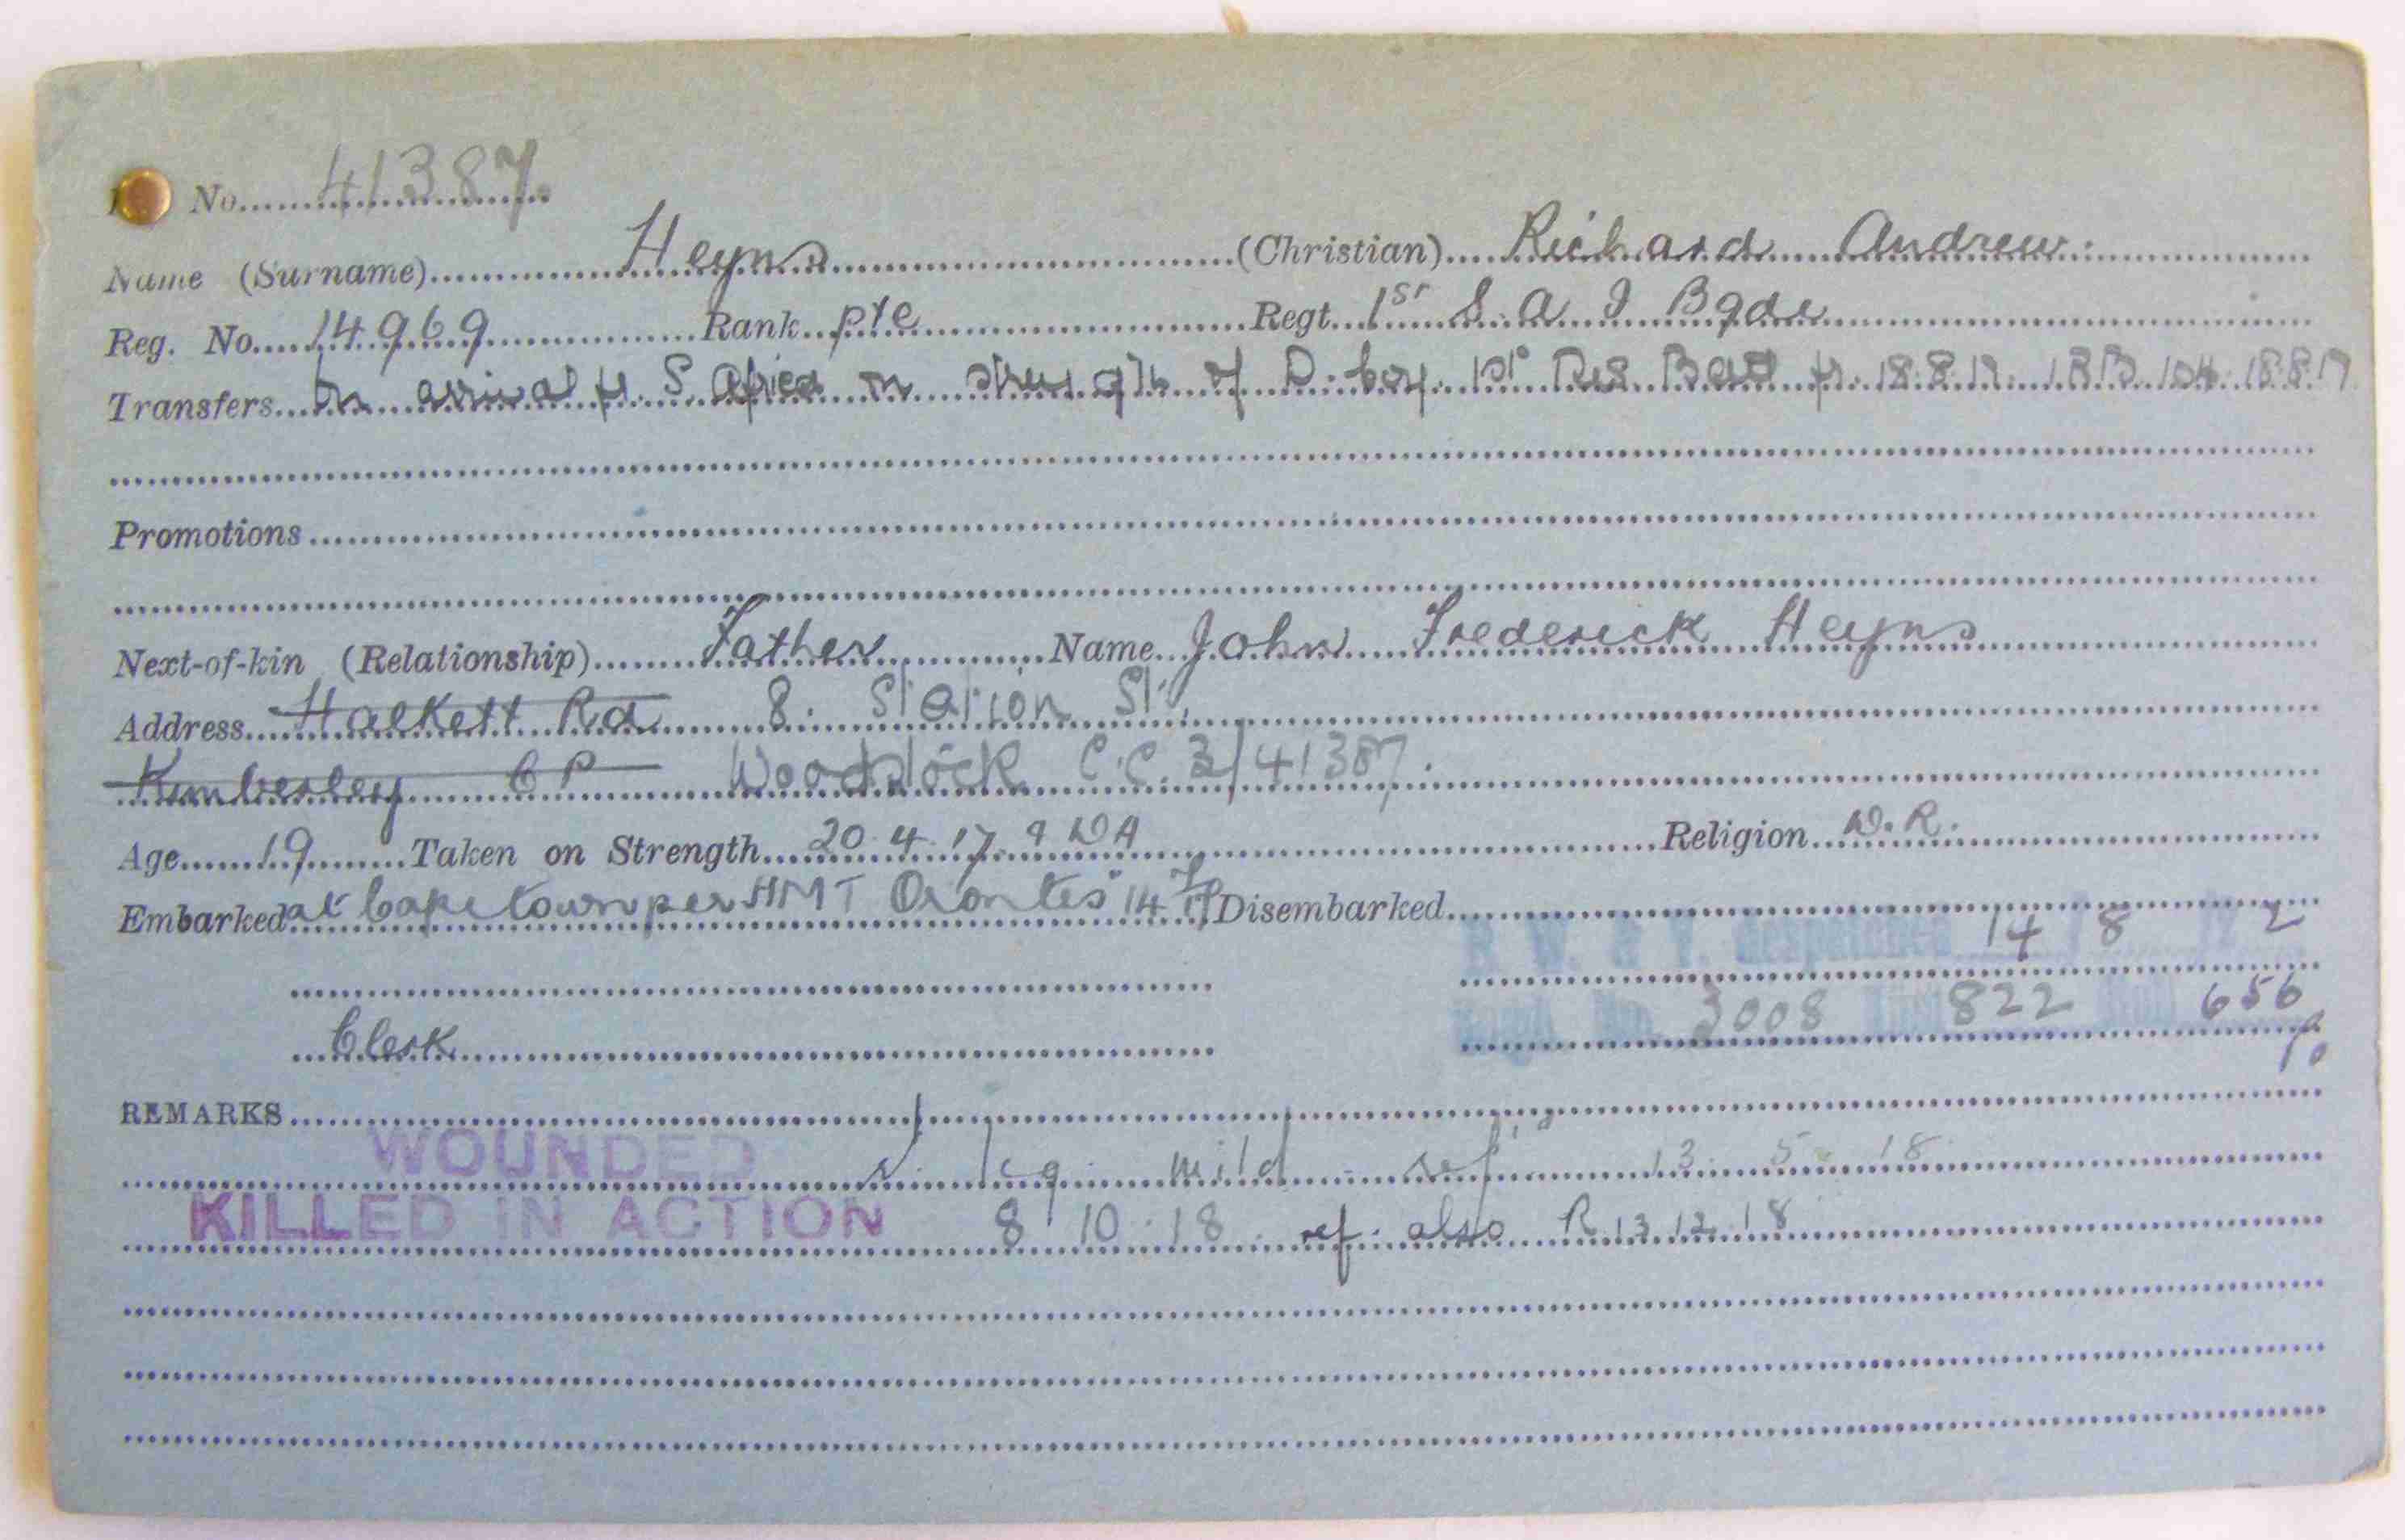 No. 41387.
Name (Surname) Heyns (Christian) Richard Andrew.
Reg. No. 14969 Rank pte Regt. 1st S. A. I Bgde
Transfers On arrival fr. S Africa on strength of D. Coy. 1st Res Batt fr. 18.8.17. 1RB 104. 18.8.17
Promotions
Next-of-kin (Relationship) Father Name John Frederick Heyns
Address Halkett Rd 8. Station St,
Kimberley C P Woodstock C.C. 3/41387.
Age 19 Taken on Strength 20.4.17 Religion D. R.
Embarked at Cape town per HMT Orontes" 14 Disembarked
R. W. & T. despatched 14 8 2
3008 822 656
Clerk
REMARKS
WOUNDED leg mild ref 13 5 18
KILLED IN ACTION 8 10 18. ref. also R 13.12.18